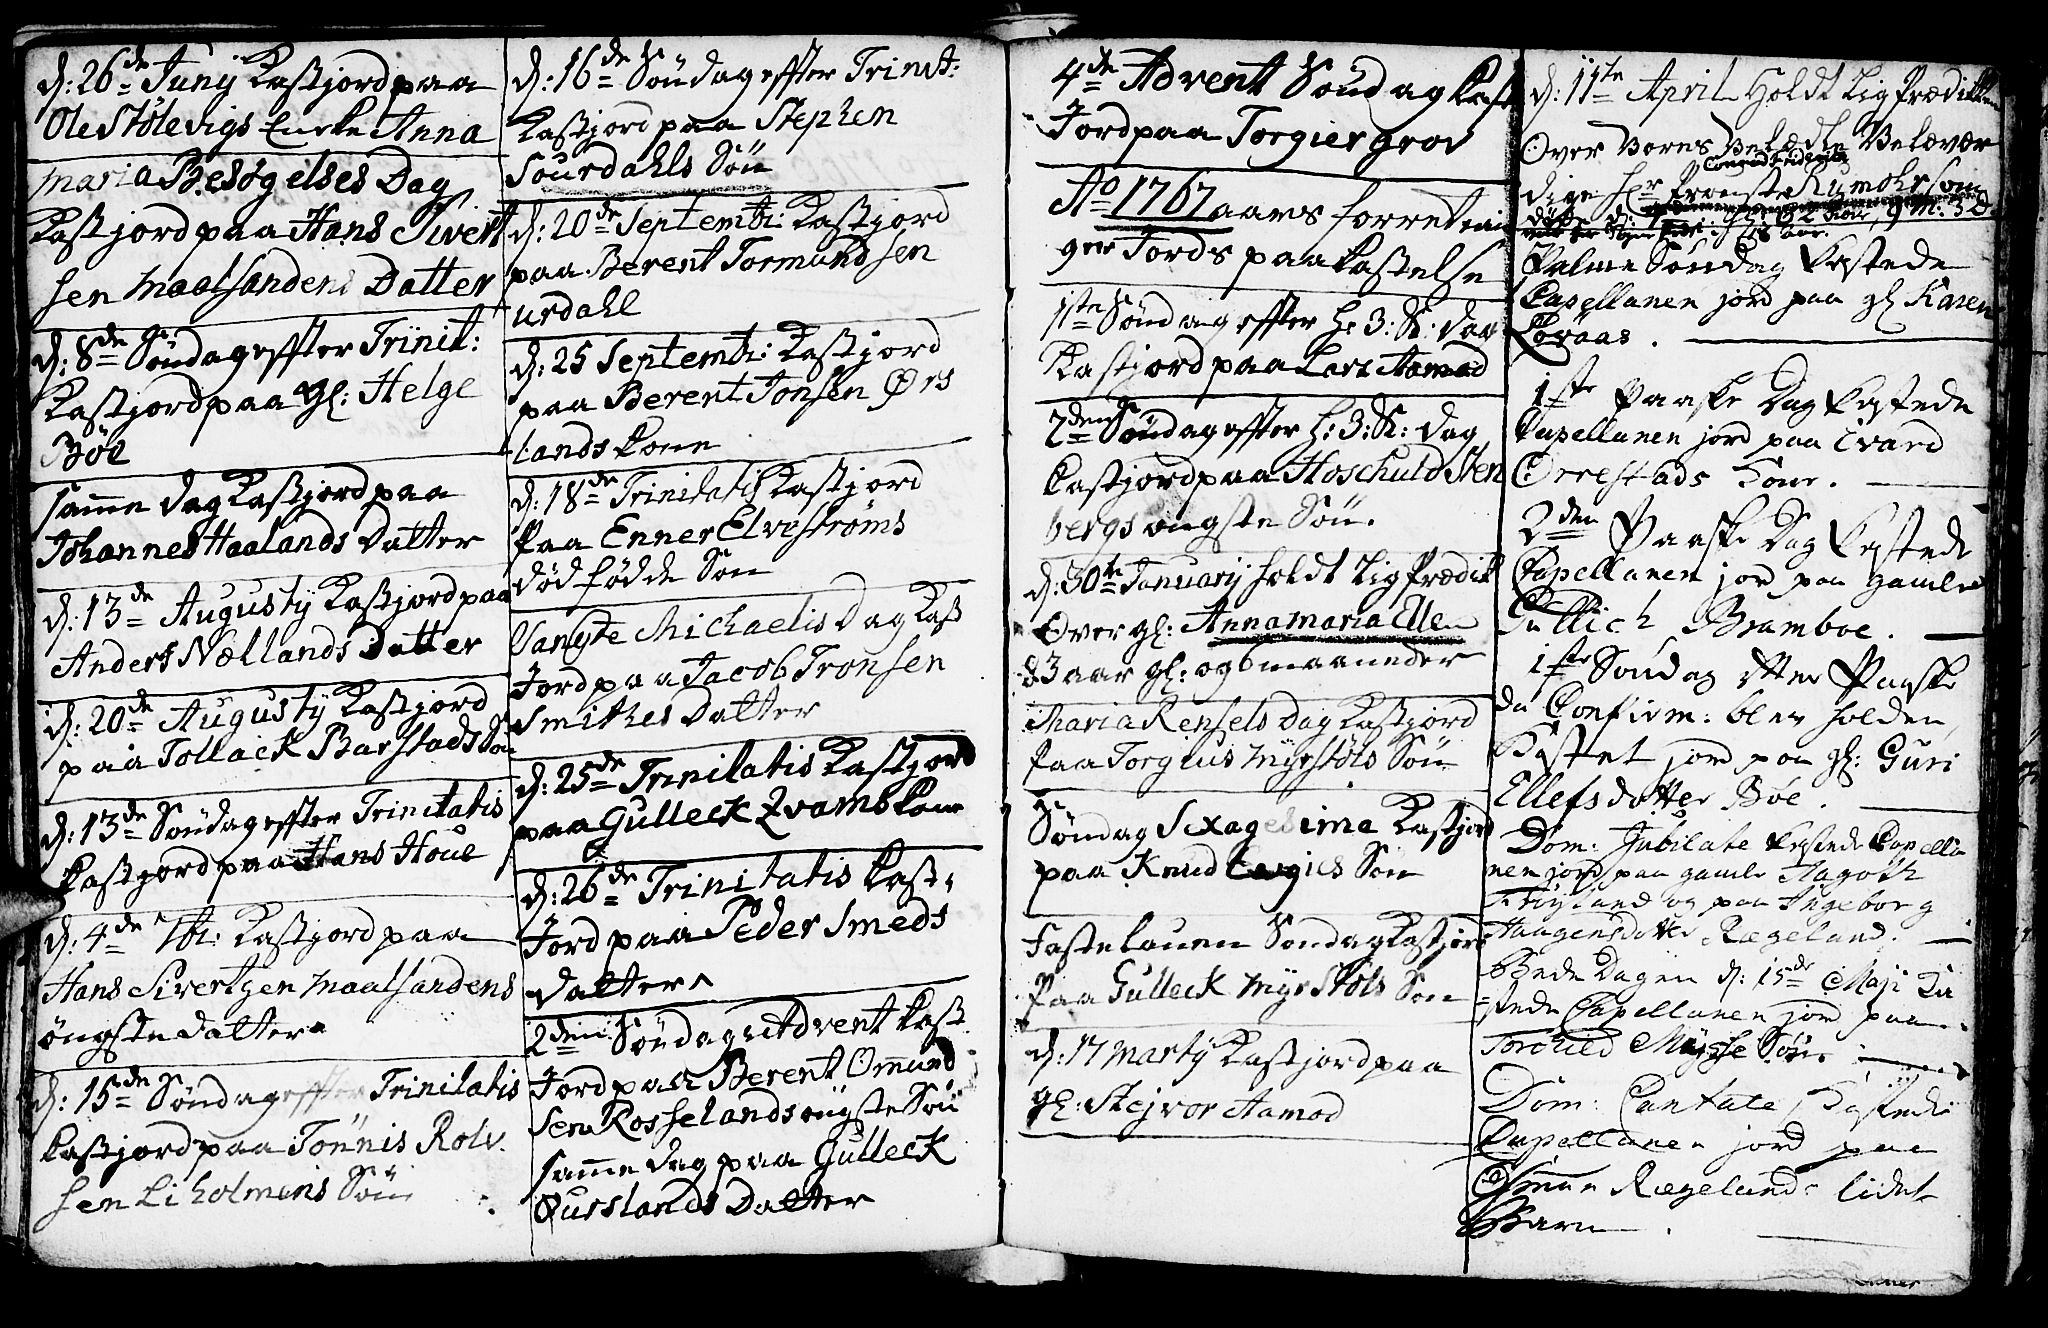 d: 26de Junij Kastjord paa
Ole Stölevigs Encke Anna
Maria Besögelses Dag
Kastjord paa Hans Sivert
sen Maalsandens Datter
d: 8de Söndag effter Trinit:
Kastjord paa gl: Helge
Böe
samme dag Kastjord paa
Johannes Haalands Datter
d: 13de Augusty Kastjord paa
Anders Nællands Datter
d: 20de Augusty Kastjord
paa Tollack Barstads Sön
d: 13de Söndag effter Trinitatis
Kastjord paa Hans Houe
d: 4de 7br: Kastjord paa
Hans Sivertzen Maalsandens
öngste datter
d: 15de Söndag effter Trinitatis
Kastjord paa Tönnis Rolv.
sen Liholmens Sön
d: 16de Söndag effter Trinit:
Kastjord paa Stephen
Sourdahls Sön
d: 20de Septembr: Kastjord
paa Berent Tormundsen
urdahl
d: 25 Septembr: Kastjord
paa Berent Jonsen Örs
lands kone
d: 18de Trinitatis Kastjord
Paa Enner Elvestrøms
död födde Sön
Sangte Michaelis Dag Kast
Jord paa Jacob Tronsen
Smithes Datter
d: 25de Trinitatis Kastjord
paa Gulleck Qvams kone
d: 26de Trinitatis Kast
Jord paa Peder Smeds
datter
2den Söndag i Advent Kast
Jord paa Berent Omund
sen Rosselands öngste Sön
samme dag paa Gulleck
Øurslands Datter
4de Advent Söndag Kast
Jord paa Torgier grov
Ao 1767 aars forretnin
ger Jords paakastelse
1ste Söndag effter H: 3: K: dag
Kastjord paa Lars Aamod
2den Söndag effter H: 3: K: dag
Kastjord paa Hoschuld Sten
bergs öngste Sön.
d: 30te January holdt Lig Prædik
Over gl: Anna Maria Ellen
83 aar gl: og 6 maaneder
Maria Rensels Dag Kastjord
Paa Torgius Myrstöls Sön
Söndag Sexagesima Kastjord
paa Knud Sön
Fastelauen Söndag Kastjord
Paa Gulleck Myrstöls Sön
d: 17 Marty Kastjord paa
gl: Stejvor Aamod
d: 11te April Holdt Lig Prædiken
Over Vores Velædle Velærvær
dige Hr Provst Rumohr som
Palme Söndag kastede
Capellanen jord paa gl Karen
Røraas.
1ste Paaske Dag kastede
Capellanen jord paa Evard
Orrestads Kone.
2den Paaske Dag kastede
Capellanen jord paa gamle
Gullich Bramboe.
1ste Söndag efter Paaske
da Confirm: blev holden
kastet jord paa gl: Guri
Ellefsdotter Böe.
Dom: Jubilate kastede Capella
nen jord paa gamle Aagoth
Fröyland og paa Ingeborg
Haagensdotter Rægeland.
Bede Dagen d: 15de Maji ka
stede Capellanen jord paa
Torkield Mÿgse Sön.
Dom: Cantate kastede
Capellanen jord paa
Omun Rægelands lidet
Barn.